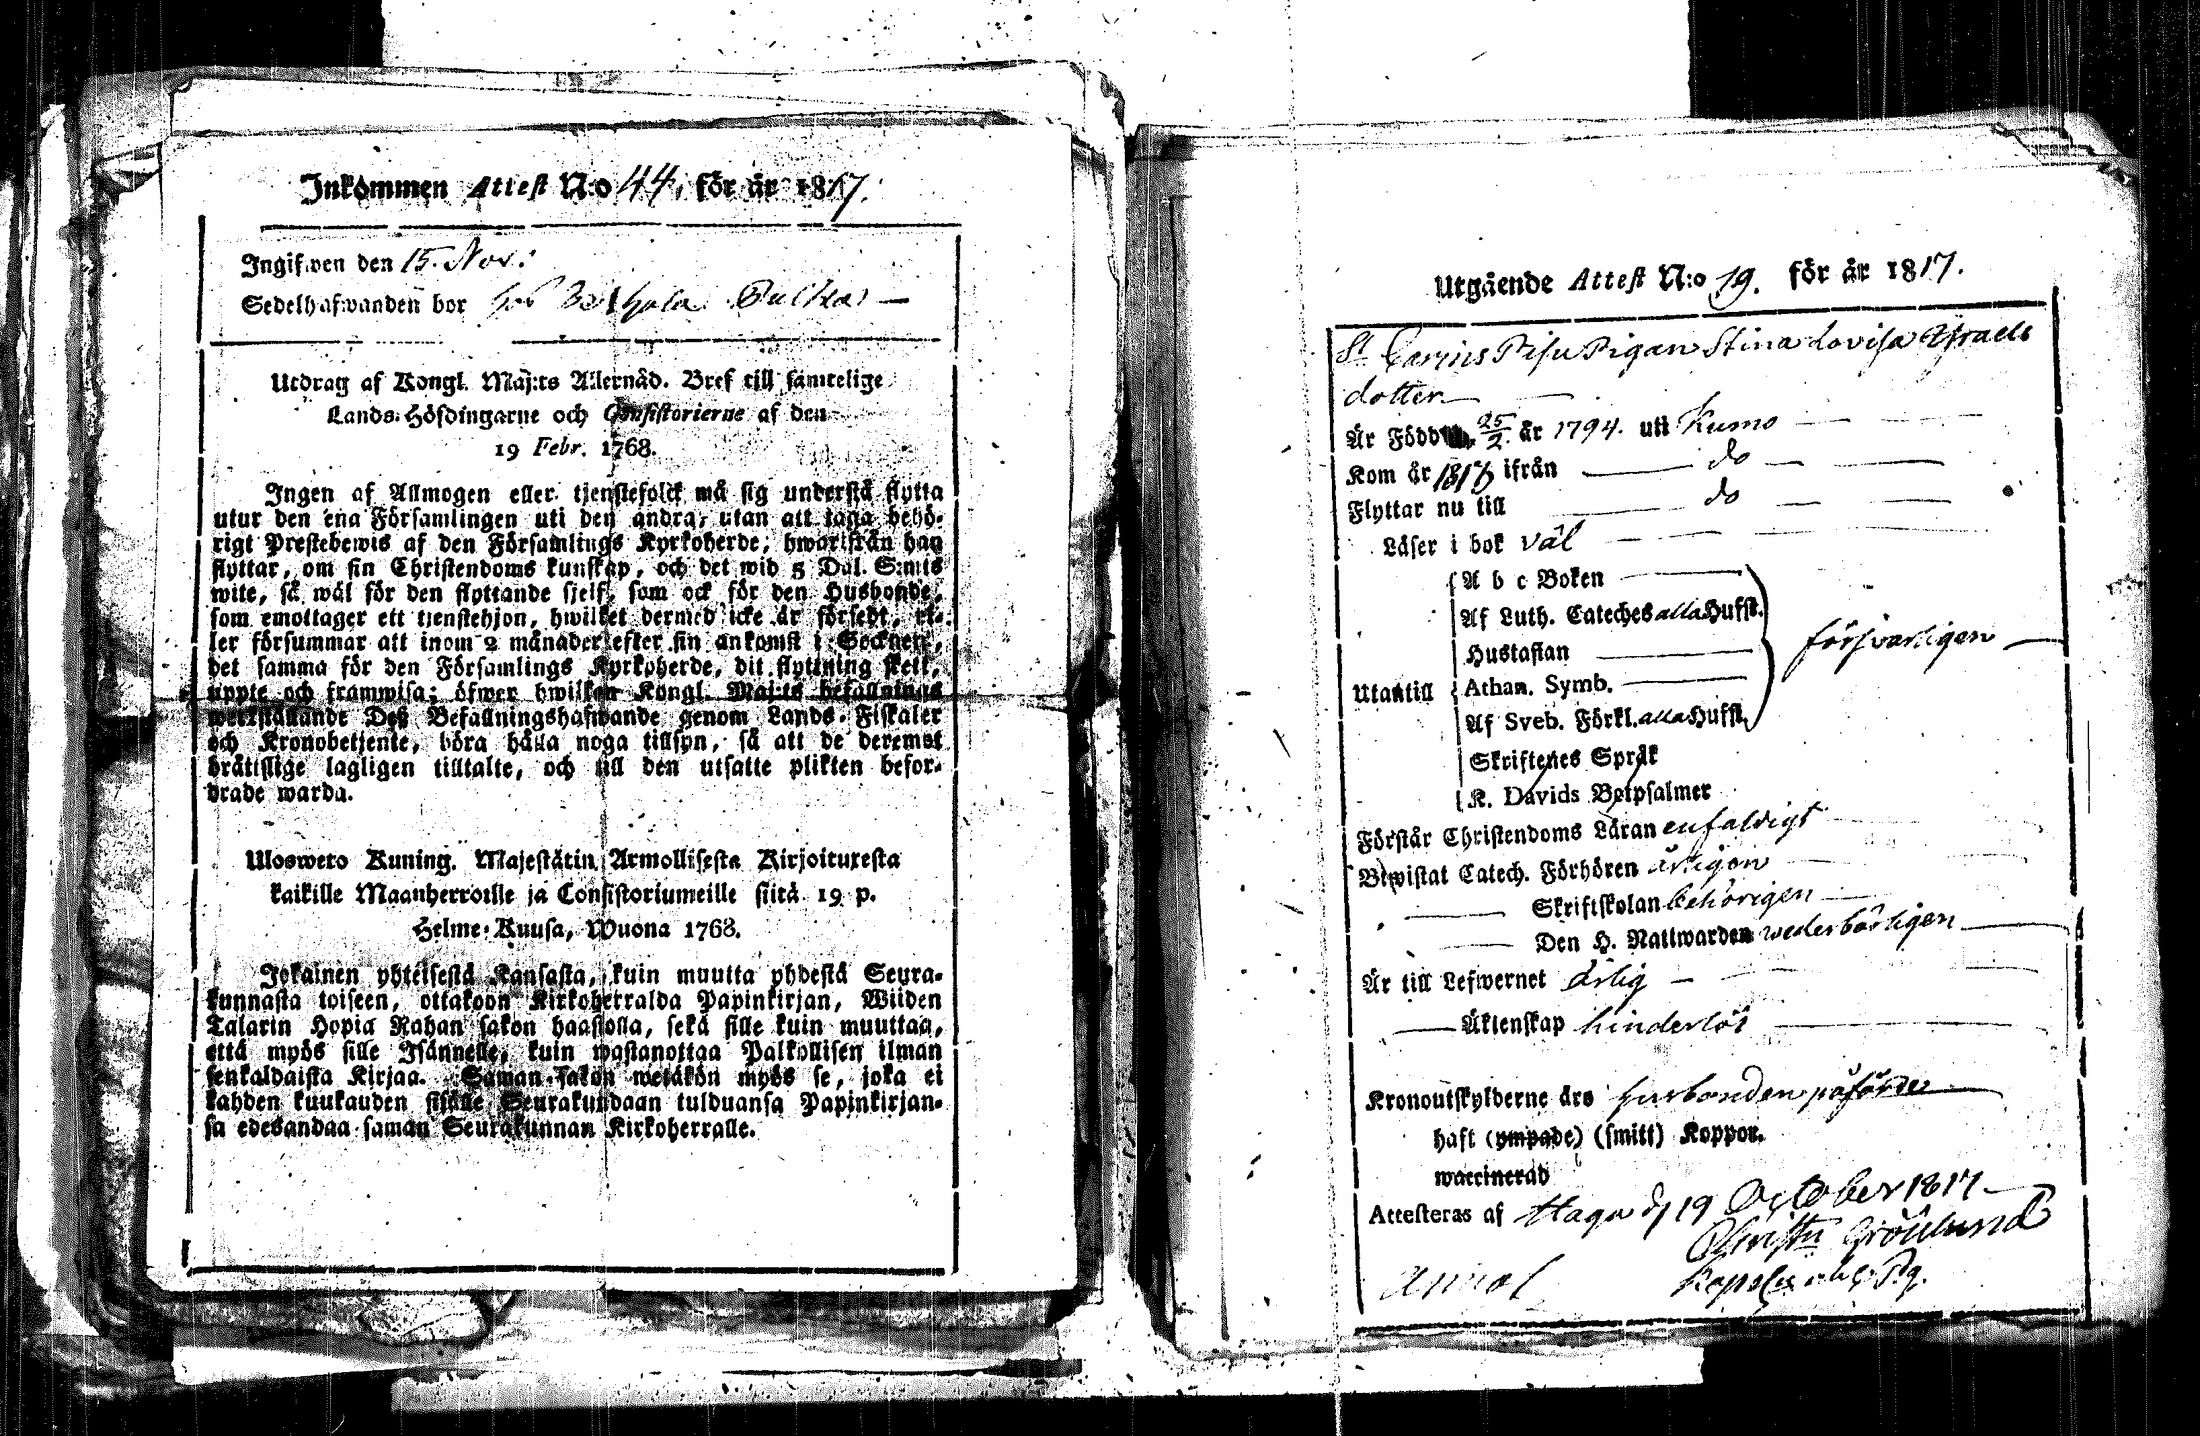 Inkommen Attest N:o 44. för år 1817.
Ingifwen den 15. Nov:
Sedelhafwanden bor hos
Utdrag af Kongl. Maj:ts Allernåd. Bref till samtelige
Lands-Höfdingarne och Consistorierne af den
19 Febr. 1768.
Ingen af Allmogen eller tjenstefolck må sig understå flytta
utur den ena Församlingen uti den andra, utan att taga behö-
rigt Prestebewis af den Församlings Kyrkoherde, hwarifrån han
flyttar, om sin Christendoms kunskap, och det wid 5 Dal. S:mts
wite, så wäl för den flyttande sjelf, som ock för den Husbonde,
som emottager ett tjenstehjon, hwilket dermed icke är försedt, el-
ler försummar att inom 2 månader efter sin ankomst i Socknen,
det samma för den Församlings Kyrkoherde, dit flyttning skett,
uppte och framwisa; öfwer hwilken Kongl. Maj:ts befallnings
werkställande Deß Befallningshafwande genom Lands-Fiskaler
och Kronobetjente, böra hålla noga tillsyn, så att de deremot
brättslige lagligen tilltalte, och till den utsatte plikten befor-
drade warda.
Ulosweto Kuning. Majestätin Armollisesta Kirjoituxesta
kaikille Maanherroille ja Consistoriumeille siitä 19 p.
Helme-Kuusa, Wuona 1768.
Jokainen yhteisestä Kansasta, kuin muutta yhdestä Seura-
kunnasta toiseen, ottakoon Kirkoherralda Papinkirjan, Wiiden
Talarin Hopia Rahan sakon haastolla, sekä sille kuin muuttaa,
että myös sille Isännelle, kuin wastanottaa Palkollisen ilman
senkaldaista Kirjaa. Saman sakon wetäkön myös se, joka ei
kahden kuukauden sisälle Seurakundaan tulduansa Papinkirjan-
sa edesandaa saman Seurakunnan Kirkoherralle.
Utgående Attest N:o 19. för år 1817.
St. Pigan Stina Lovisa Israels
dotter
Är Född 25/2. år 1794. uti Kumo
Kom år 1817 ifrån do
Flyttar nu till do
Läser i bok väl
A b c Boken
Af Luth. Cateches alla Hufst.
Hustaflan
försvarligen
Utantill Athan. Symb.
Af Sveb. Förkl. alla Hufst.
Skriftenes Språk
K. Davids Botpsalmer
Förstår Christendoms Läran enfaldigt
Bewistat Catech. Förhören årligen
Skriftskolan behörigen
Den H. Nattwarden wederbörligen
Är till Lefwernet ärlig
Äktenskap hinderlös
Kronoutskylderne äro husbonden påförde
haft (ympade) (smitt) Koppor.
waccinerad
Attesteras af Haga d 19 October 1817
Grönlund